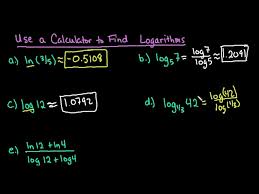 Use a Calculator to Find Logarithms
a) ln(3/5) ≈ -0.5108
b) log₅7 = log 7 / log 5 ≈ 1.2091
c) log 12 ≈ 1.0792
d) log₁/₃ 42 = log(42) / log(1/3)
e) ln 12 + ln 4 / log 12 + log 4